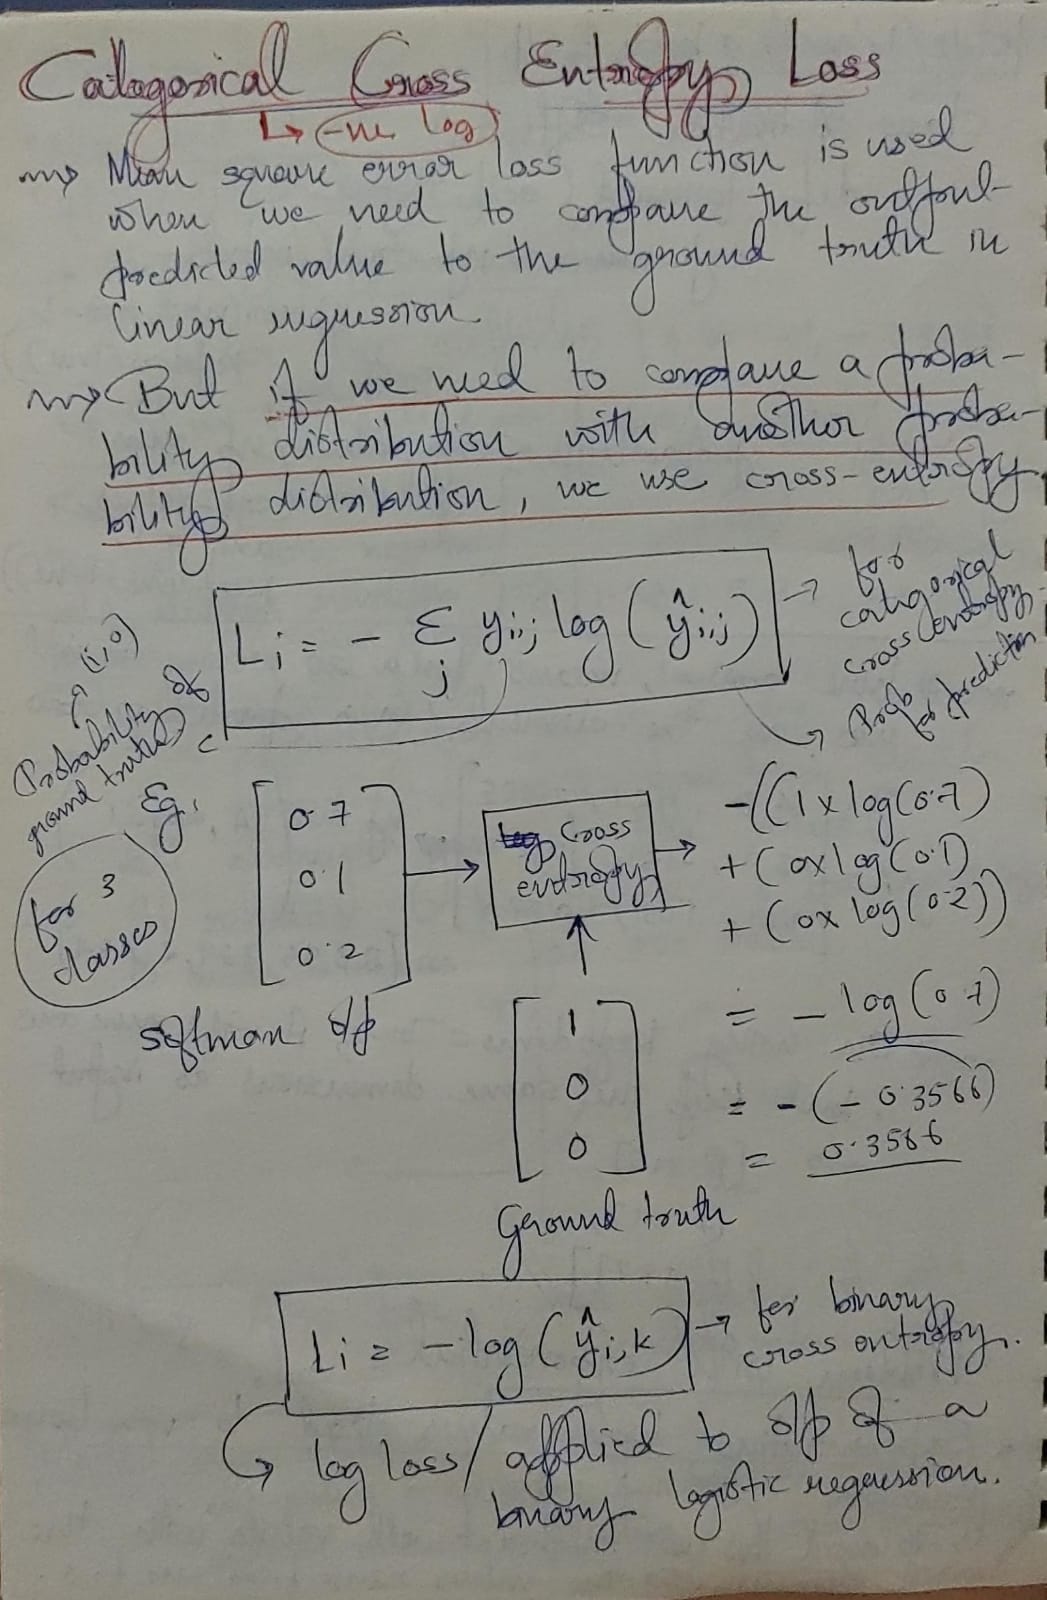 Catagorical Cross Entropy Loss
↳ -ve log
⇝ Mean square error loss function is used
when we need to compare the output
predicted value to the ground truth in
linear regression.
⇝ But if we need to compare a proba-
bility distribution with another proba-
bility distribution, we use cross-entropy
Li = - Σ yi,j log (ŷi,j)
j
→ for
categorical
cross entropy
Prob
for prediction
(1,0)
Probability of
ground truth
Eg.
for 3
classes
0.7
0.1
0.2
softmax o/p
Cross
entropy
1
0
0
Ground truth
-((1 x log(0.7)
+ (0x log(0.1)
+ (0x log(0.2))
= - log(0.7)
= - (- 0.3566)
= 0.3566
Li = -log (ŷi,k)
→ for binary
cross entropy.
↳ log loss / applied to o/p of a
binary logistic regression.